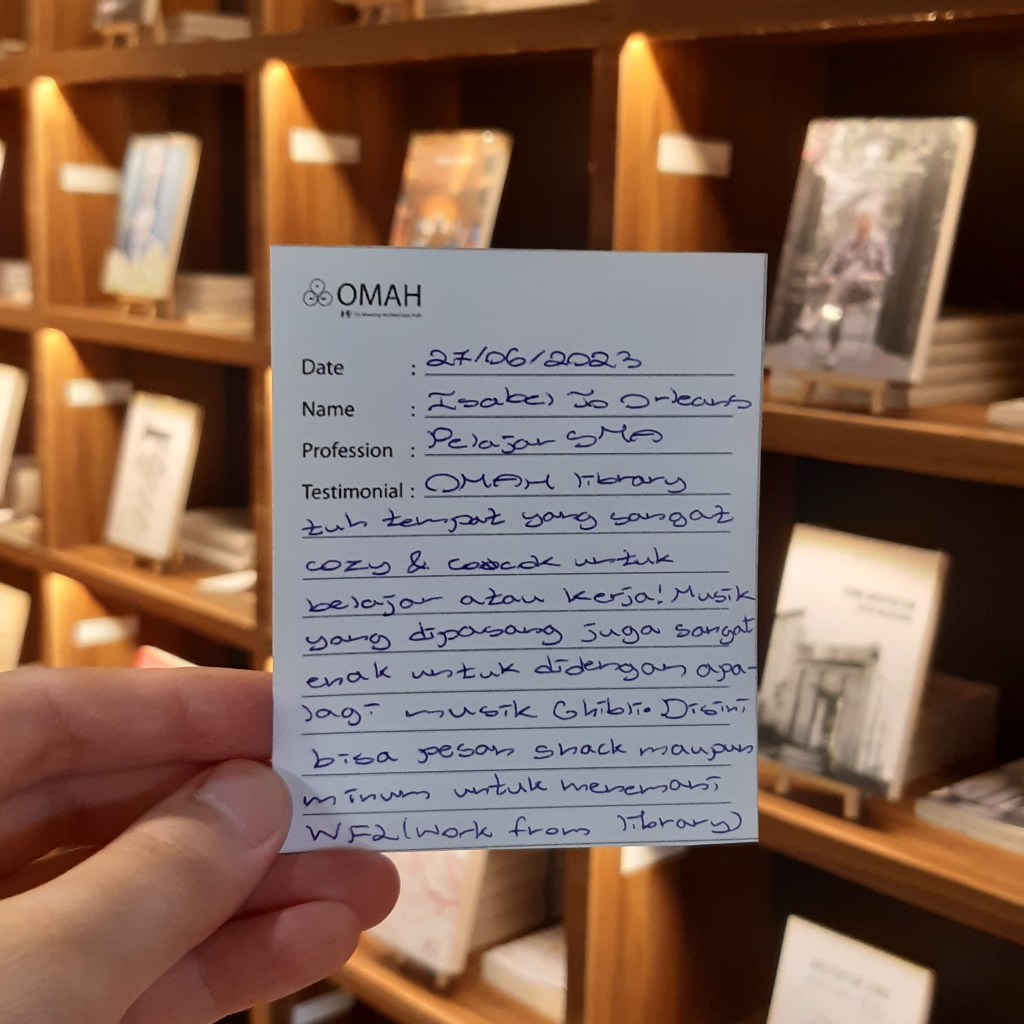 OMAH
Date : 27/06/2023
Name : Isabel Jo Orleans
Profession : Pelajar SMA
Testimonial : OMAH library
tuh tempat yang sangat
cozy & cocok untuk
belajar atau kerja! Musik
yang dipasang juga sangat
enak untuk didengan apa-
lagi musik Ghibli. Disini
bisa pesan snack maupun
minum untuk menemani
WFL (Work from library)